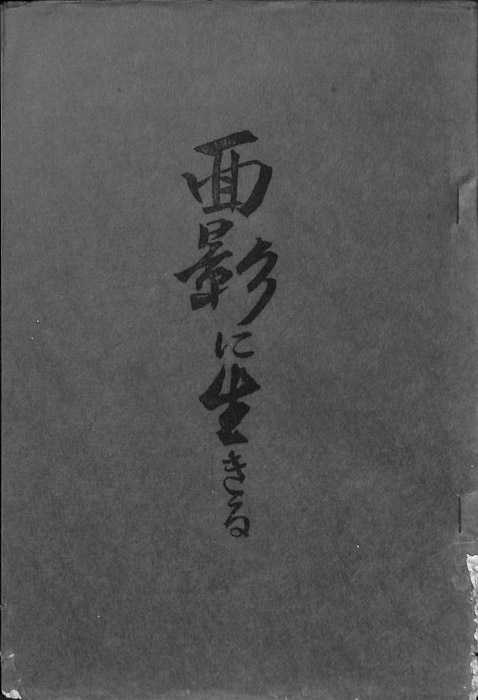 面影に生きる